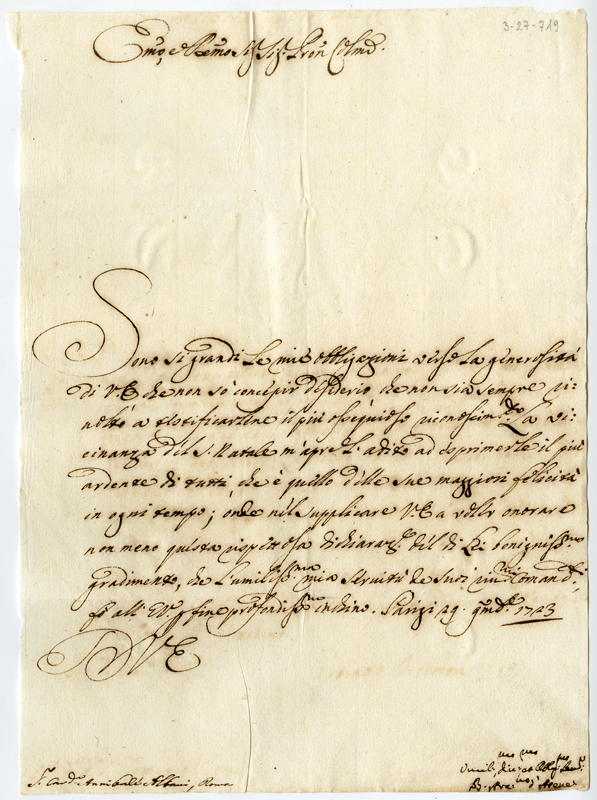 3-27-719
Emo, e Remo Sigr. Sigr. Pron Colmo.
Sono sì grandi le mie obbligazioni verso la generosità
di V.E. che non sò concepir desiderio che non sia sempre ri-
volto a testificarlene il più ossequioso riconoscim.to La vi-
cinanza del S. Natale m'apre l'adito ad esprimerle il più
ardente di tutti, che è quello delle sue maggiori felicità
in ogni tempo; onde nel supplicare V.E. a voler onorare
non meno questa rispettosa dichiaraz.e del di Lei benigniss.mo
gradimento, che l'umiliss.ma mia servitù de suoi Comandi,
fò all' E.V. profondiss.mo inchino. Parigi 29. 9mbre 1723
V E
Sr. Card. Annibale Albani, Roma
Umil.mo div.mo et Obblig.mo Serv.
B. Arc.